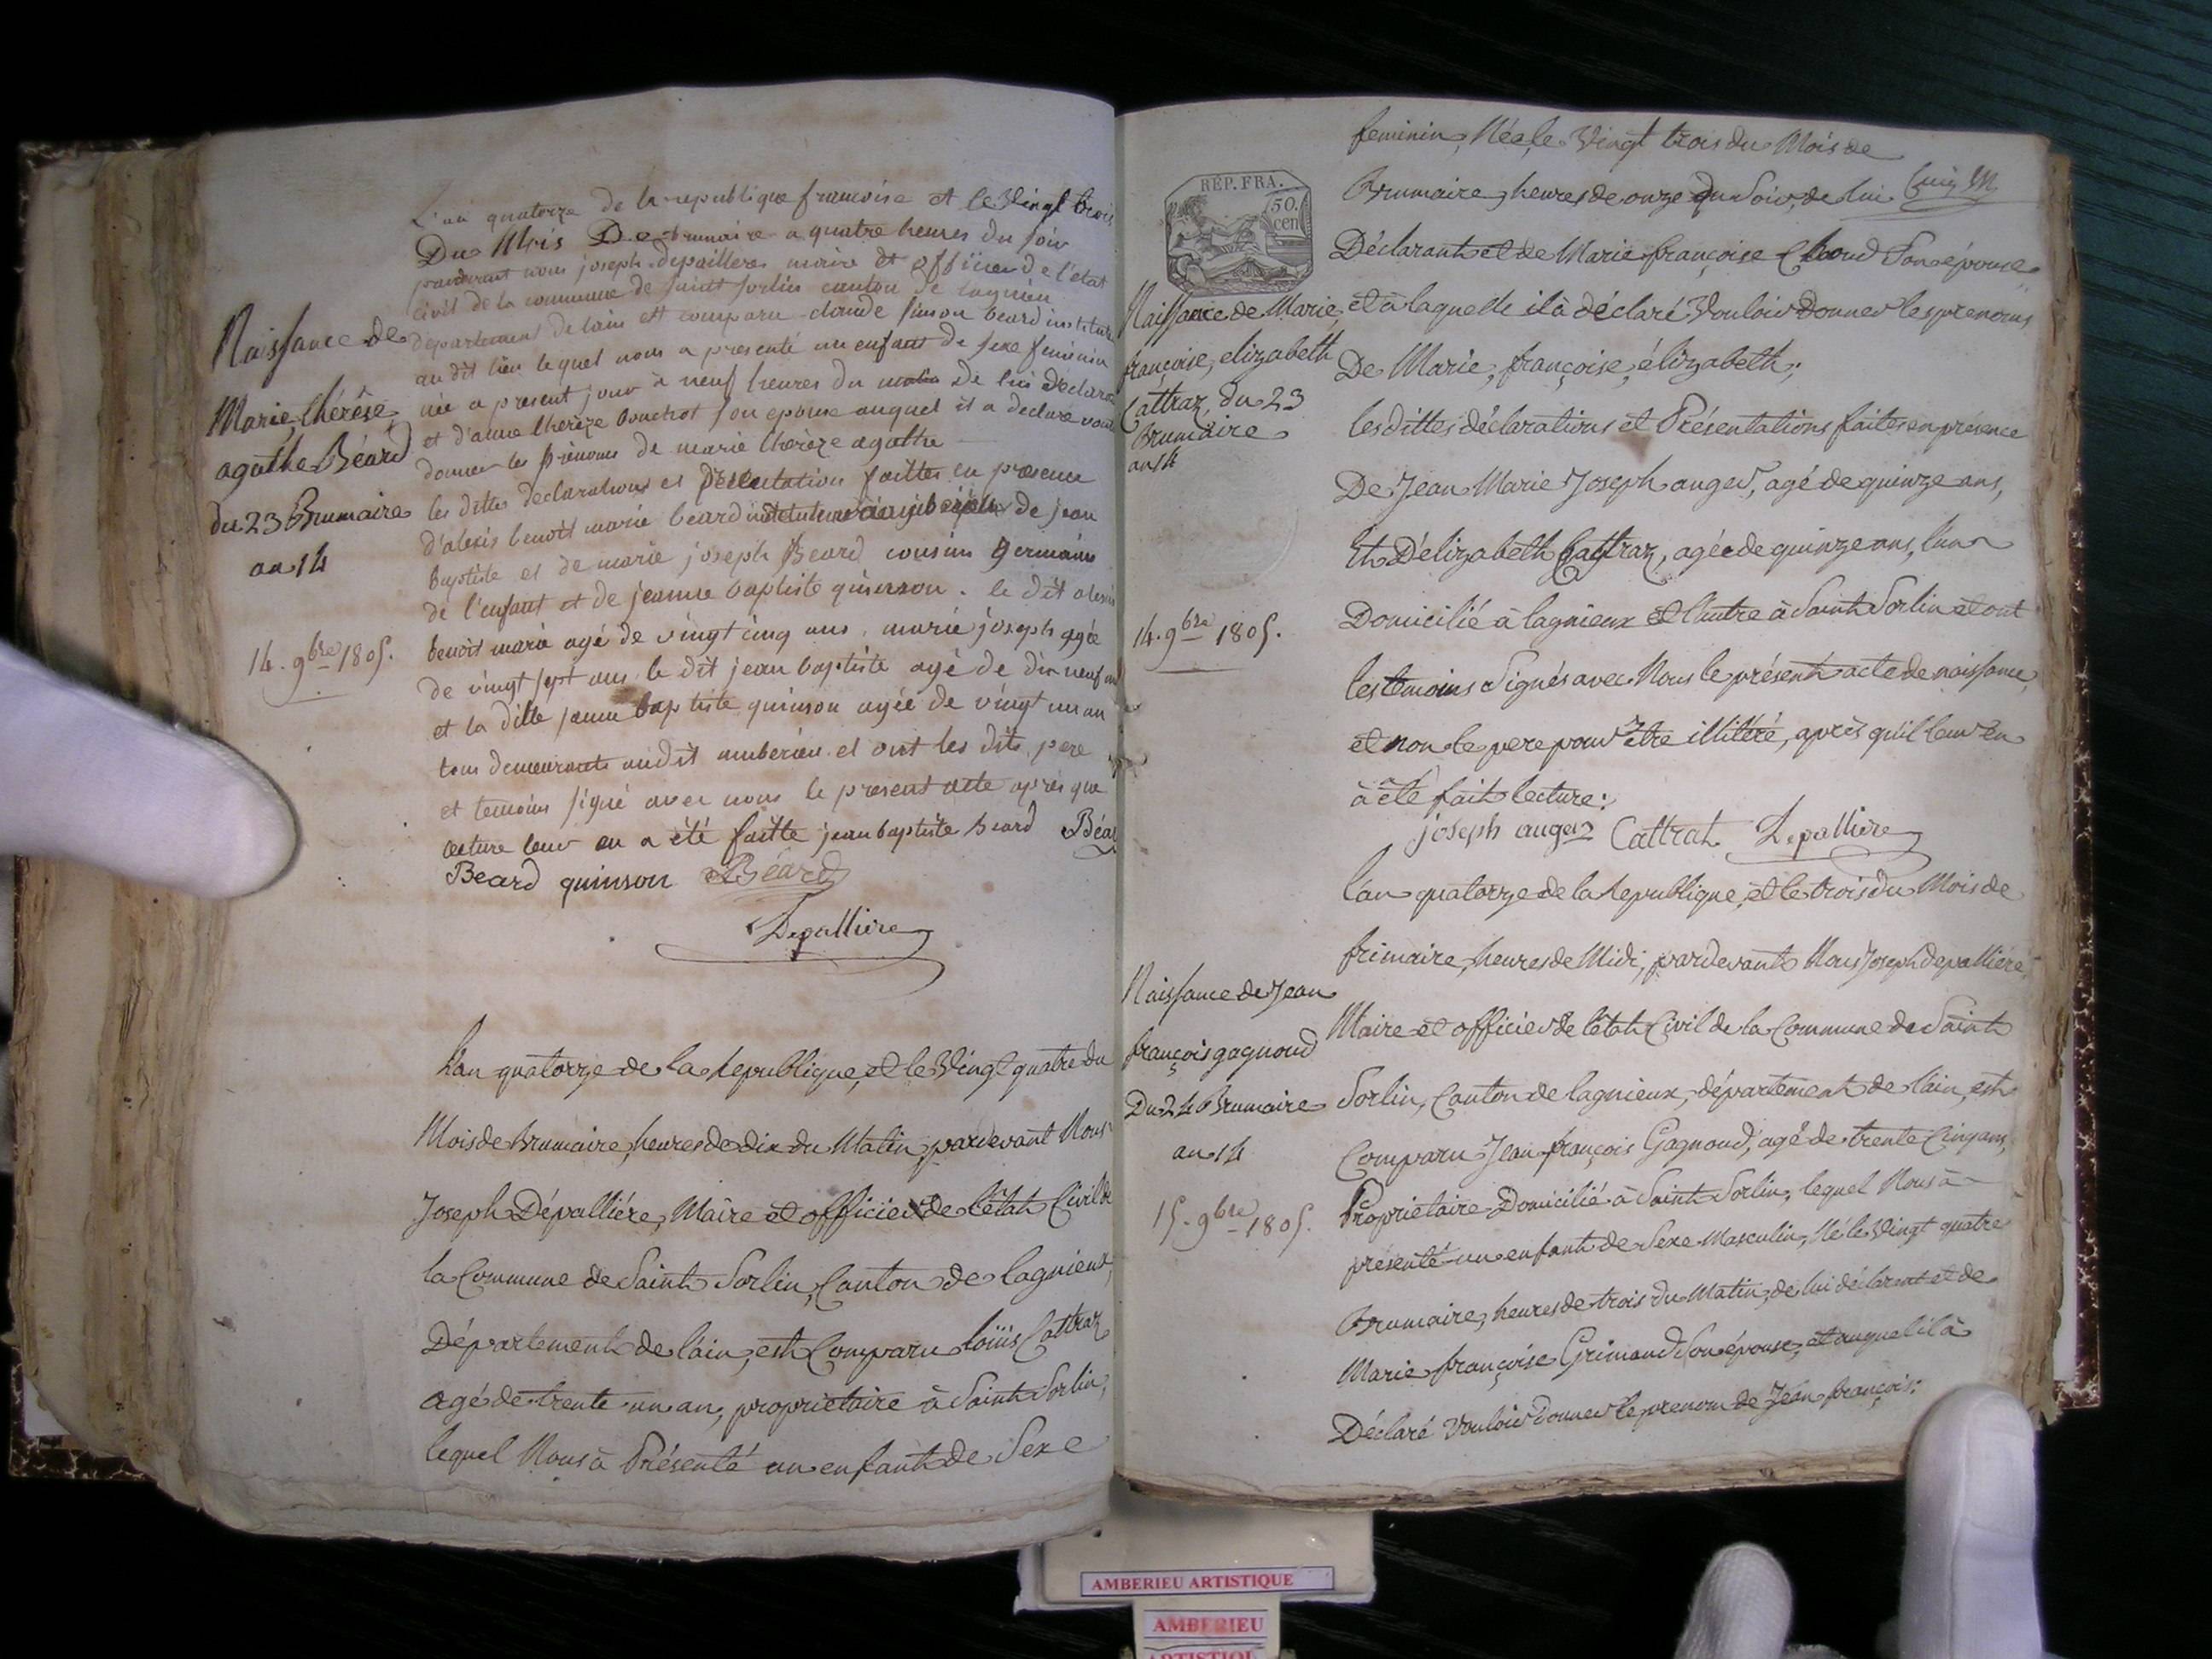 L'an quatorze de la republique francoise et le Vingt trois
Du Mois De brumaire a quatre heures du soir
pardevant nous joseph depalliere maire et officier de l'état
civil de la commune de saint sorlin canton de lagnieu
Naissance de
departement de lain est comparu claude simon beard institut
au dit lieu lequel nous a presenté un enfant de sexe feminin
née a present jour à neuf heures du matin De lui déclara
Marie, thérèse,
et d'anne therèze bouchot son epouse auquel il a declaré voul
agathe Béard
donner les prénoms de marie therèze agathe
du 23 Brumaire
les dittes declarations et présentation faittes en presence
d'alexis benoit marie beard de jean
an 14
baptiste et de marie joseph Beard cousins germains
de l'enfant et de jeanne baptiste quinson. le dit alexis
14. 9bre 1805.
benoit marie agé de vingt cinq ans, marie joseph agée
de vingt sept ans le dit jean baptiste agé de dix neuf an
et la ditte jeanne baptiste quinson agée de vingt un an
tous demeurants audit amberieu et ont les dits pere
et temoins signé avec nous le present acte après que
lecture leur en a été faitte jean baptiste Beard Béa
Beard quinson Béard
Depalliere
L'an quatorze de la Republique, et le Vingt quatre du
Mois de Brumaire, heures de dix du Matin, pardevant Nous
Joseph Dépalliére, Maire et officier de létat Civil de
la Commune de Saint Sorlin, Canton de lagnieux,
Département de l'ain, est Comparu loüis Cattraz
agé de trente un an, proprietaire à Saint Sorlin,
lequel Nous à Présenté un enfant de Sexe
feminin, Née, le Vingt trois du Mois de
RÉP. FRA.
50. cen
Brumaire, heures de onze du Soir, de lui
Déclarant et de Marie françoise Chaud Son épouse
Naissance de Marie,
et à laquelle il à déclaré Vouloir Donner les prenoms
françoise, elizabeth
De Marie, françoise, élizabeth;
Cattraz, du 23
Brumaire
les dittes déclarations et Présentations faites en présence
an 14
De Jean Marie Joseph auger, agé de quinze ans,
Et D'élizabeth Cattraz, agée de quinze ans, l'un
14. 9bre 1805.
Domicilié à lagnieux et l'autre à Saint Sorlin et ont
les temoins Signés avec Nous le présent acte de naissance,
et non le pere pour être illitéré, après qu'il leur en
à été fait lecture:
joseph auger Cattrat Depalliere
l'an quatorze de la Republique, et le trois du Mois de
frimaire, heures de Midi, pardevant Nous Joseph depalliére,
Naissance de Jean
Maire et officier de létat Civil de la Commune de Saint
françois gagnoud
Sorlin, Canton de lagnieux, département de l'ain, est
Du 24 Brumaire
an 14
Comparu Jean françois Gagnoud, agé de trente Cinq ans,
15. 9bre 1805.
Proprietaire Domicilié à Saint Sorlin, lequel Nous à
présenté un enfant de Sexe Masculin, Né le Vingt quatre
Brumaire, heures de trois du Matin, de lui déclarant et de
Marie françoise Grimaud Son épouse, et auquel il à
Déclaré Vouloir donner le prenom de Jean françois;
AMBERIEU ARTISTIQUE
AMBERIEU
ARTISTIQU